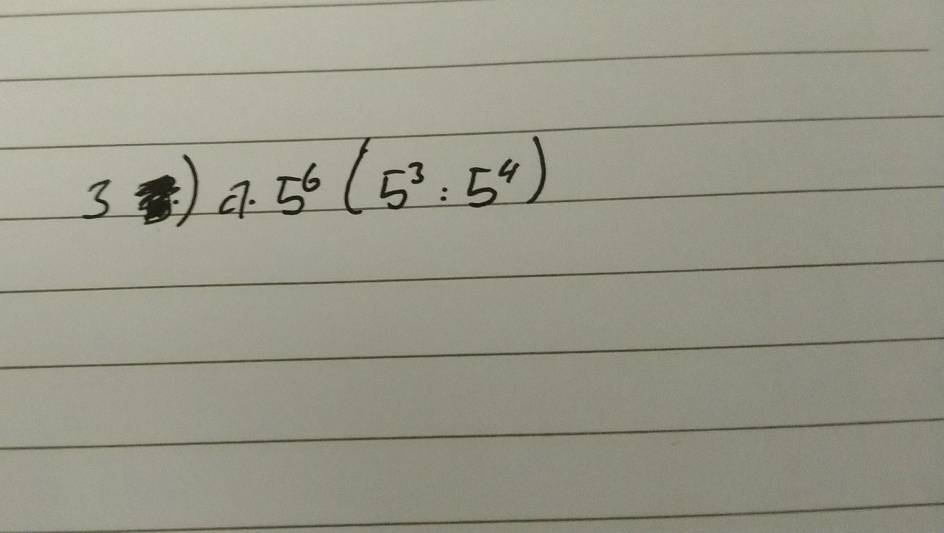 3 ) a. 5⁶ (5³ : 5⁴)